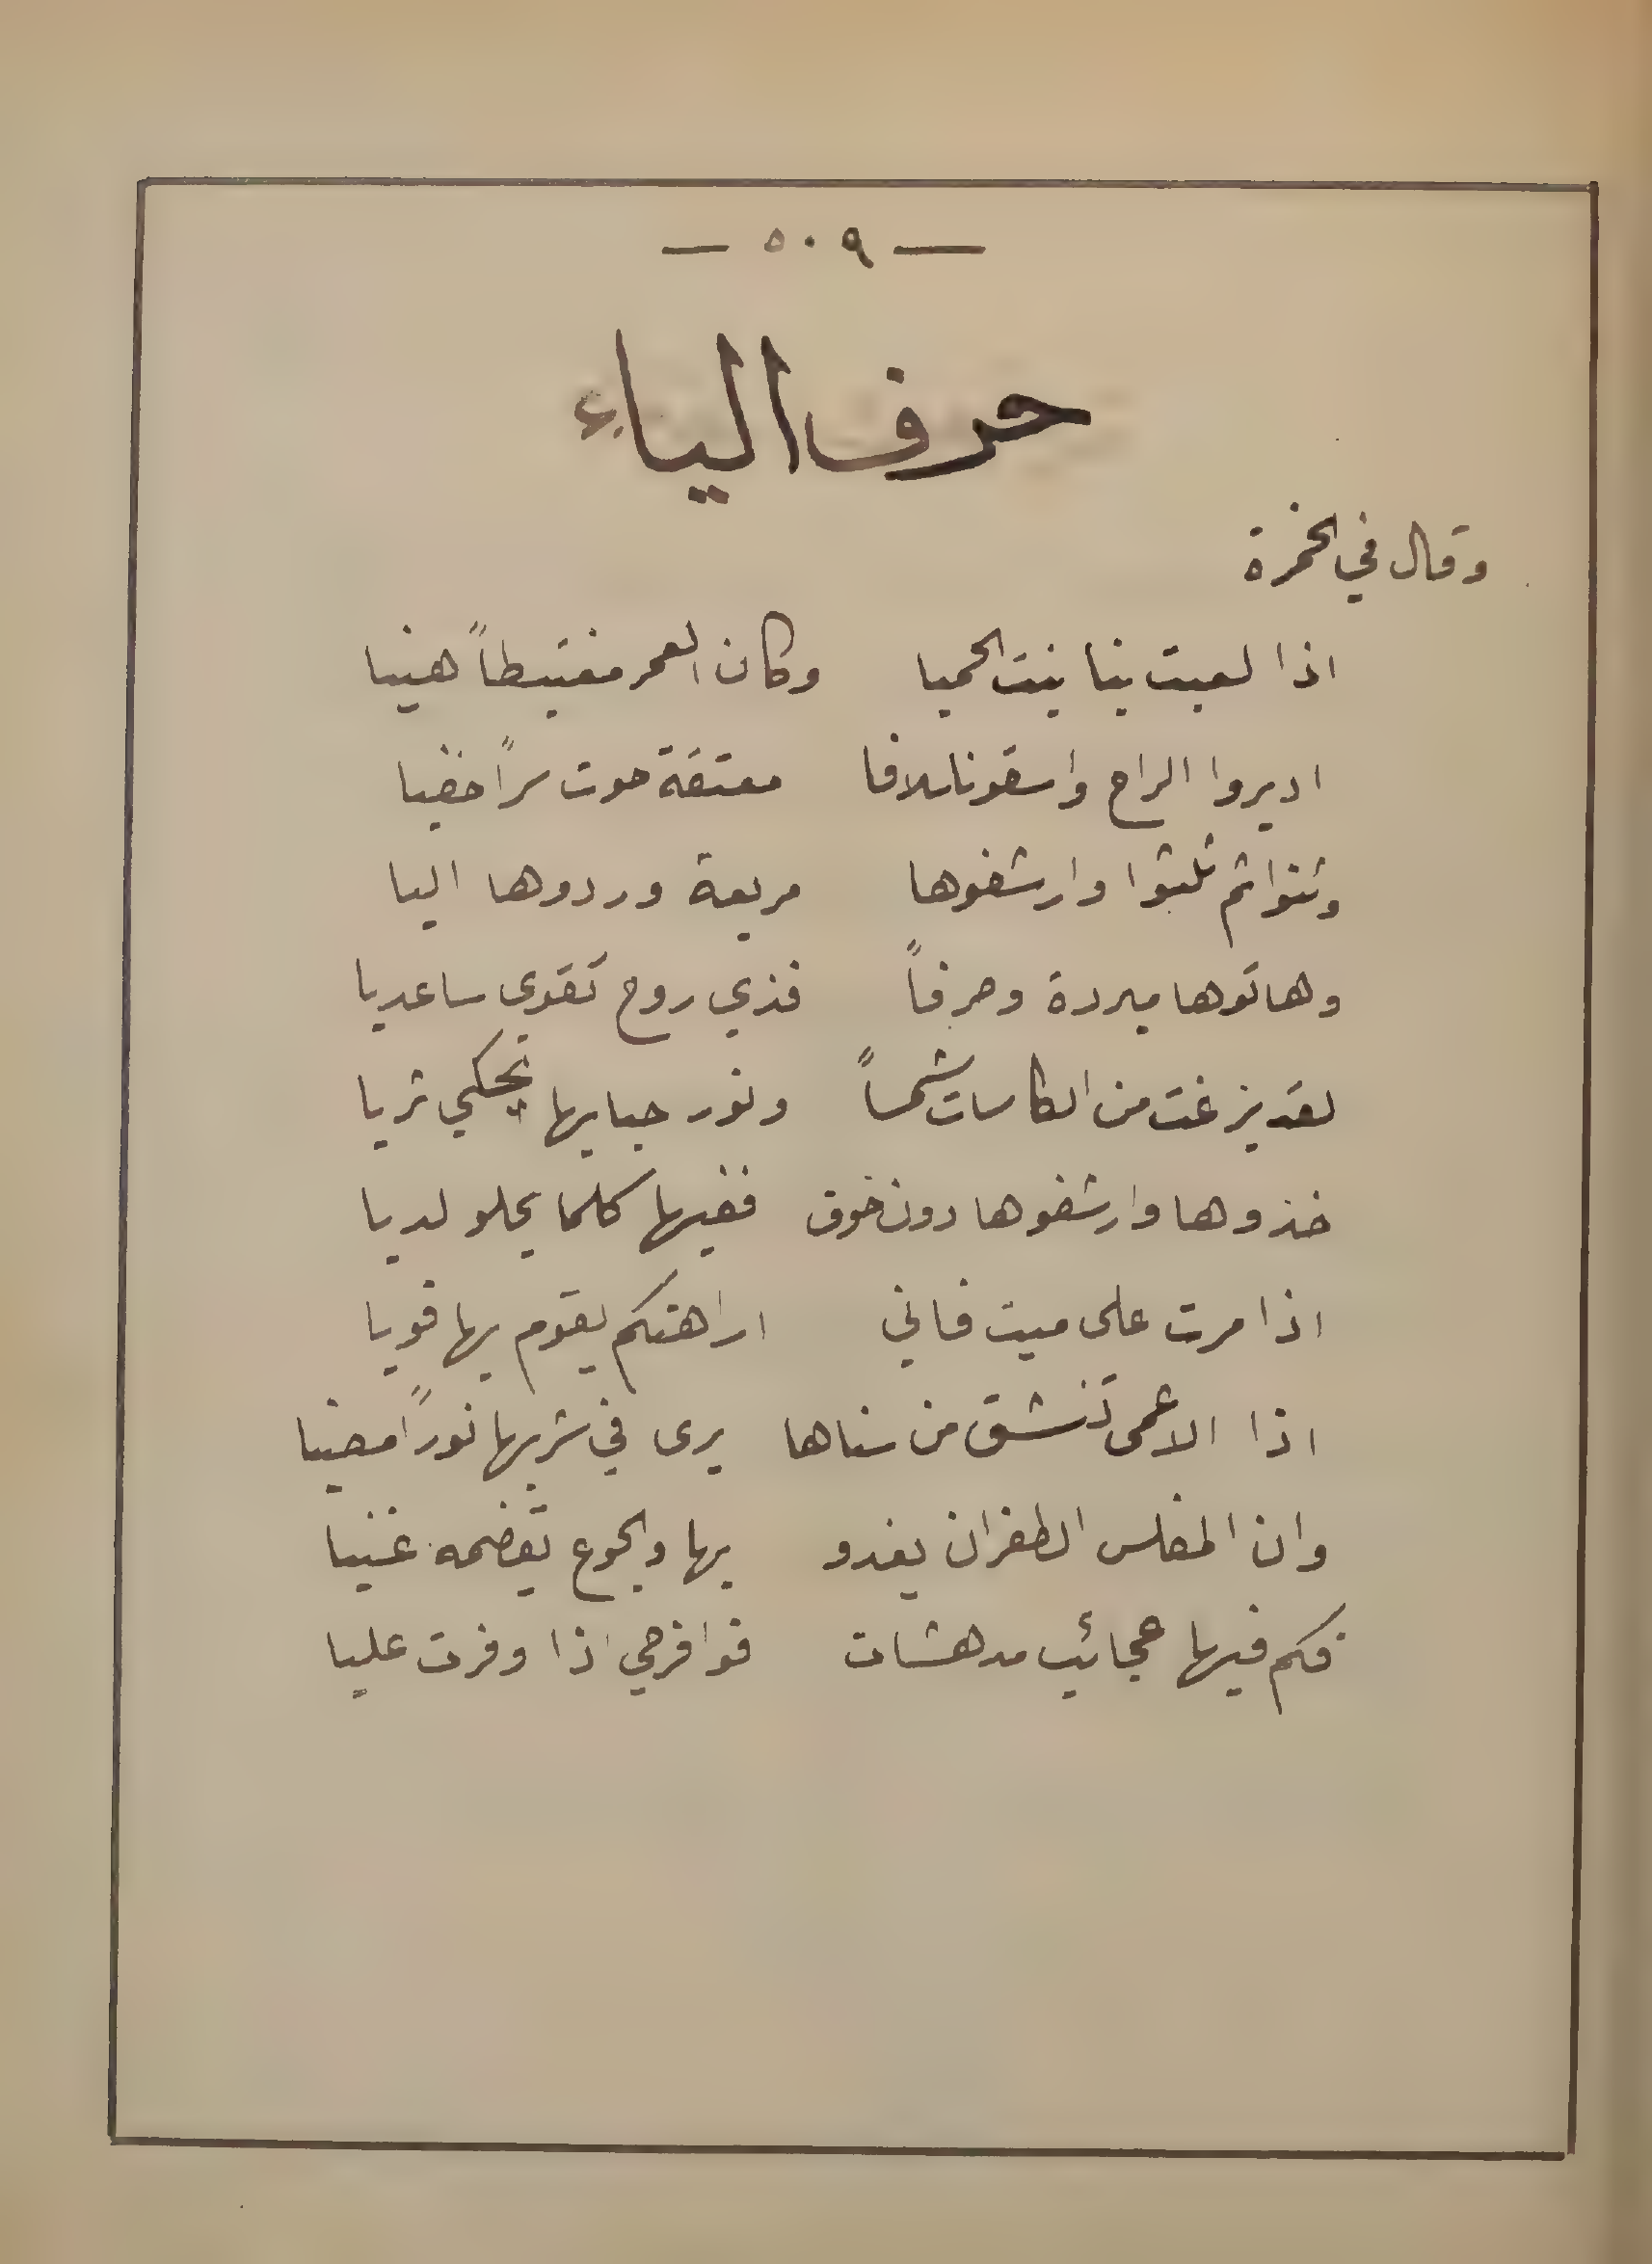 — ٥٠٩ —
حرف الياء
وقال في الخمرة
اذا لعبت بنا بنت الحميا وكان العمر مغتبطاً هنيا
اديروا الراح واسقونا سلافا معتقة حوت سراً خفيا
وثنوا ثم ثلثوا وارشفوها مربعة وردوها اليا
وهاتوها مبردة وصرفاً فذي روح تقوي ساعديا
لقد بزغت من الكاسات شمساً ونور حبابها يحكي ثريا
خذوها وارشفوها دون خوف ففيها كلما يحلو لديا
اذا مرت على ميت فاني اراهنكم يقوم بها قويا
اذا الاعمى تنشق من سناها يرى في شربها نوراً مضيا
وان المفلس الطفران يغدو بها والجوع يقضمه غنيا
فكم فيها عجائب مدهشات فوا فرحي اذا وفرت عليا